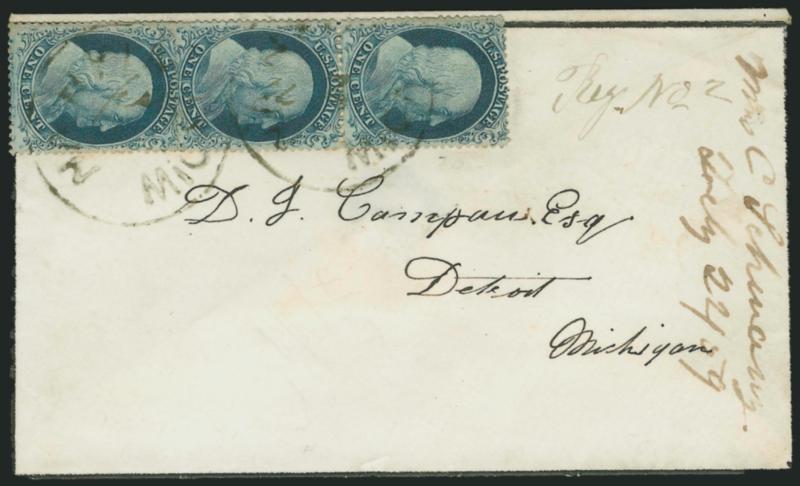 U.S. POSTAGE
ONE CENT.
U.S. POSTAGE
ONE CENT.
U.S. POSTAGE
ONE CENT.
MIC
MIC
Reg. No 2
D. J. Campau. Esq
Detroit
Michigan
C Schwarz.
24 59